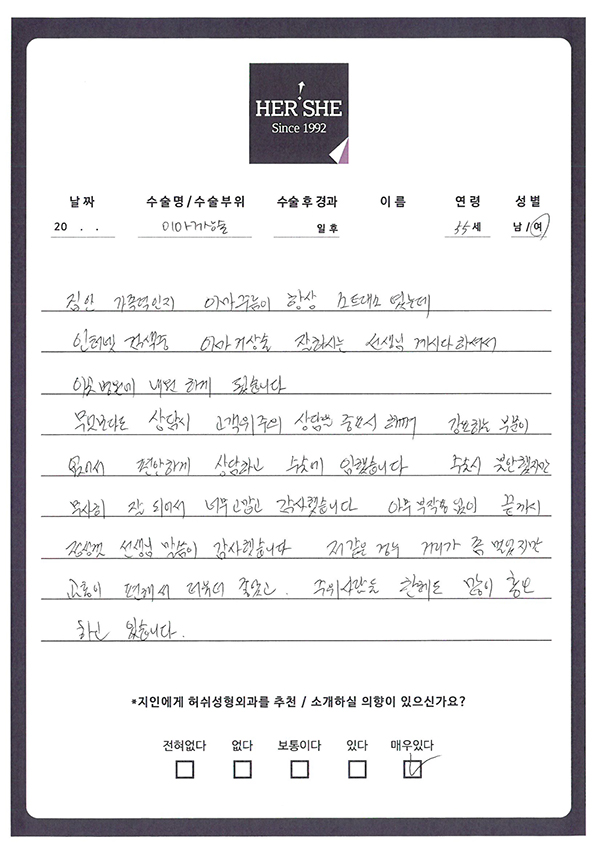 HER SHE
Since 1992
날짜 수술명/수술부위 수술후경과 이름 연령 성별
20 . . 이마거상술 일후 55세 남/여
집안 가족력인지 이마주름이 항상 스트레스 였는데
인터넷 검색중 이마거상술 잘하시는 선생님 계시다하셔서
이곳병원에 내원 하게 됬습니다
무엇보다도 상담시 고객위주의 상담 강요하는 부분이
없어서 편안하게 상담하고 수술에 임했습니다 수술시 불안했지만
무사히 잘 되어서 너무고맙고 감사했습니다 아무부작용없이 끝까지
정성껏 선생님 말씀이 감사했습니다 저같은 경우 거리가 좀 멀었지만
교통이 편해서 더욱더 좋았고. 주위사람들 한테도 많이 홍보
하고 있습니다.
*지인에게 허쉬성형외과를 추천 / 소개하실 의향이 있으신가요?
전혀없다 없다 보통이다 있다 매우있다